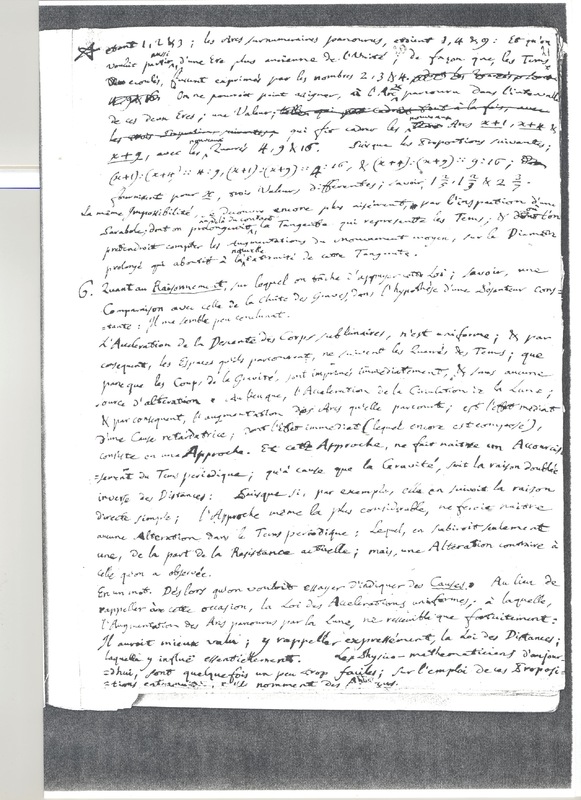 étant 1, 2 & 3 ; les Arcs surnuméraires parcourus, étoient 1, 4 & 9 : Et qu'on
voulut partir aussi, d'une Ere plus ancienne de l'Unité ; de façon que, les Tems
écoulés, fussent exprimés par les nombres 2, 3 & 4.
On ne pouvoit point assigner, à l'Arc x parcouru dans l'intervalle
de ces deux Eres ; une Valeur ;
qui fit cadrer les nouveaux Arcs x+1, x+4 &
x+9, avec les nouveaux Quarrés 4, 9 & 16. Puisque les Proportions suivantes ;
(x+1):(x+4) :: 4:9, (x+1):(x+9) :: 4:16, & (x+4):(x+9) :: 9:16 ;
fournissent pour x, trois Valeurs différentes ; savoir,
La même Impossibilité, se découvre encore plus aisément, par l'inspection d'une
Parabole ; dont on prolongeroit, la Tangente qui représente les Tems ; & dont l'on
prétendroit compter les Augmentations du Mouvement moyen, sur le Diametre
prolongé qui aboutit à la nouvelle extrémité de cette Tangente.
6. Quant au Raisonnement, sur lequel on tâche d'appuyer cette Loi ; savoir, une
Comparaison avec celle de la Chûte des Graves, dans l'hypothèse d'une Pesanteur cons=
=tante : Il me semble peu concluant.
L'Acceleration de la Descente des Corps sublunaires, n'est uniforme ; & par
consequent, les Espaces qu'ils parcourent, ne suivent les Quarrés des Tems ; que
parceque les Coups de la Gravité, sont imprimés immédiatement, & sans aucune
sorte d'altération. Au lieu que, l'Acceleration de la Circulation de la Lune ;
& par consequent, l'augmentation des Arcs qu'elle parcourt ; est l'effet médiat
d'une Cause retardatrice ; dont l'effet immédiat (lequel encore est composé),
consiste en une Approche. Et cette Approche, ne fait naitre un Accourcis=
=sement du Tems périodique ; qu'à cause que la Gravité, suit la raison doublée
inverse des Distances : Puisque si, par exemple, elle en suivoit la raison
directe simple ; l'Approche même la plus considérable, ne feroit naitre
aucune Alteration dans le Tems périodique ; Lequel, en subiroit seulement
une, de la part de la Resistance actuelle ; mais, une Alteration contraire à
celle qu'on a observée.
En un mot. Dès lors qu'on vouloit essayer d'indiquer des Causes. Au lieu de
rappeller à cette occasion, la Loi des Accelerations uniformes ; à laquelle,
l'Augmentation des Arcs parcourus par la Lune, ne ressemble que fortuitement :
Il auroit mieux valu ; y rappeller expressément, la Loi des Distances ;
laquelle y influe essentiellement. Les Physico-mathématiciens d'aujour=
=dhui, sont quelquefois un peu trop faciles ; sur l'emploi de ces Proposi=
=tions